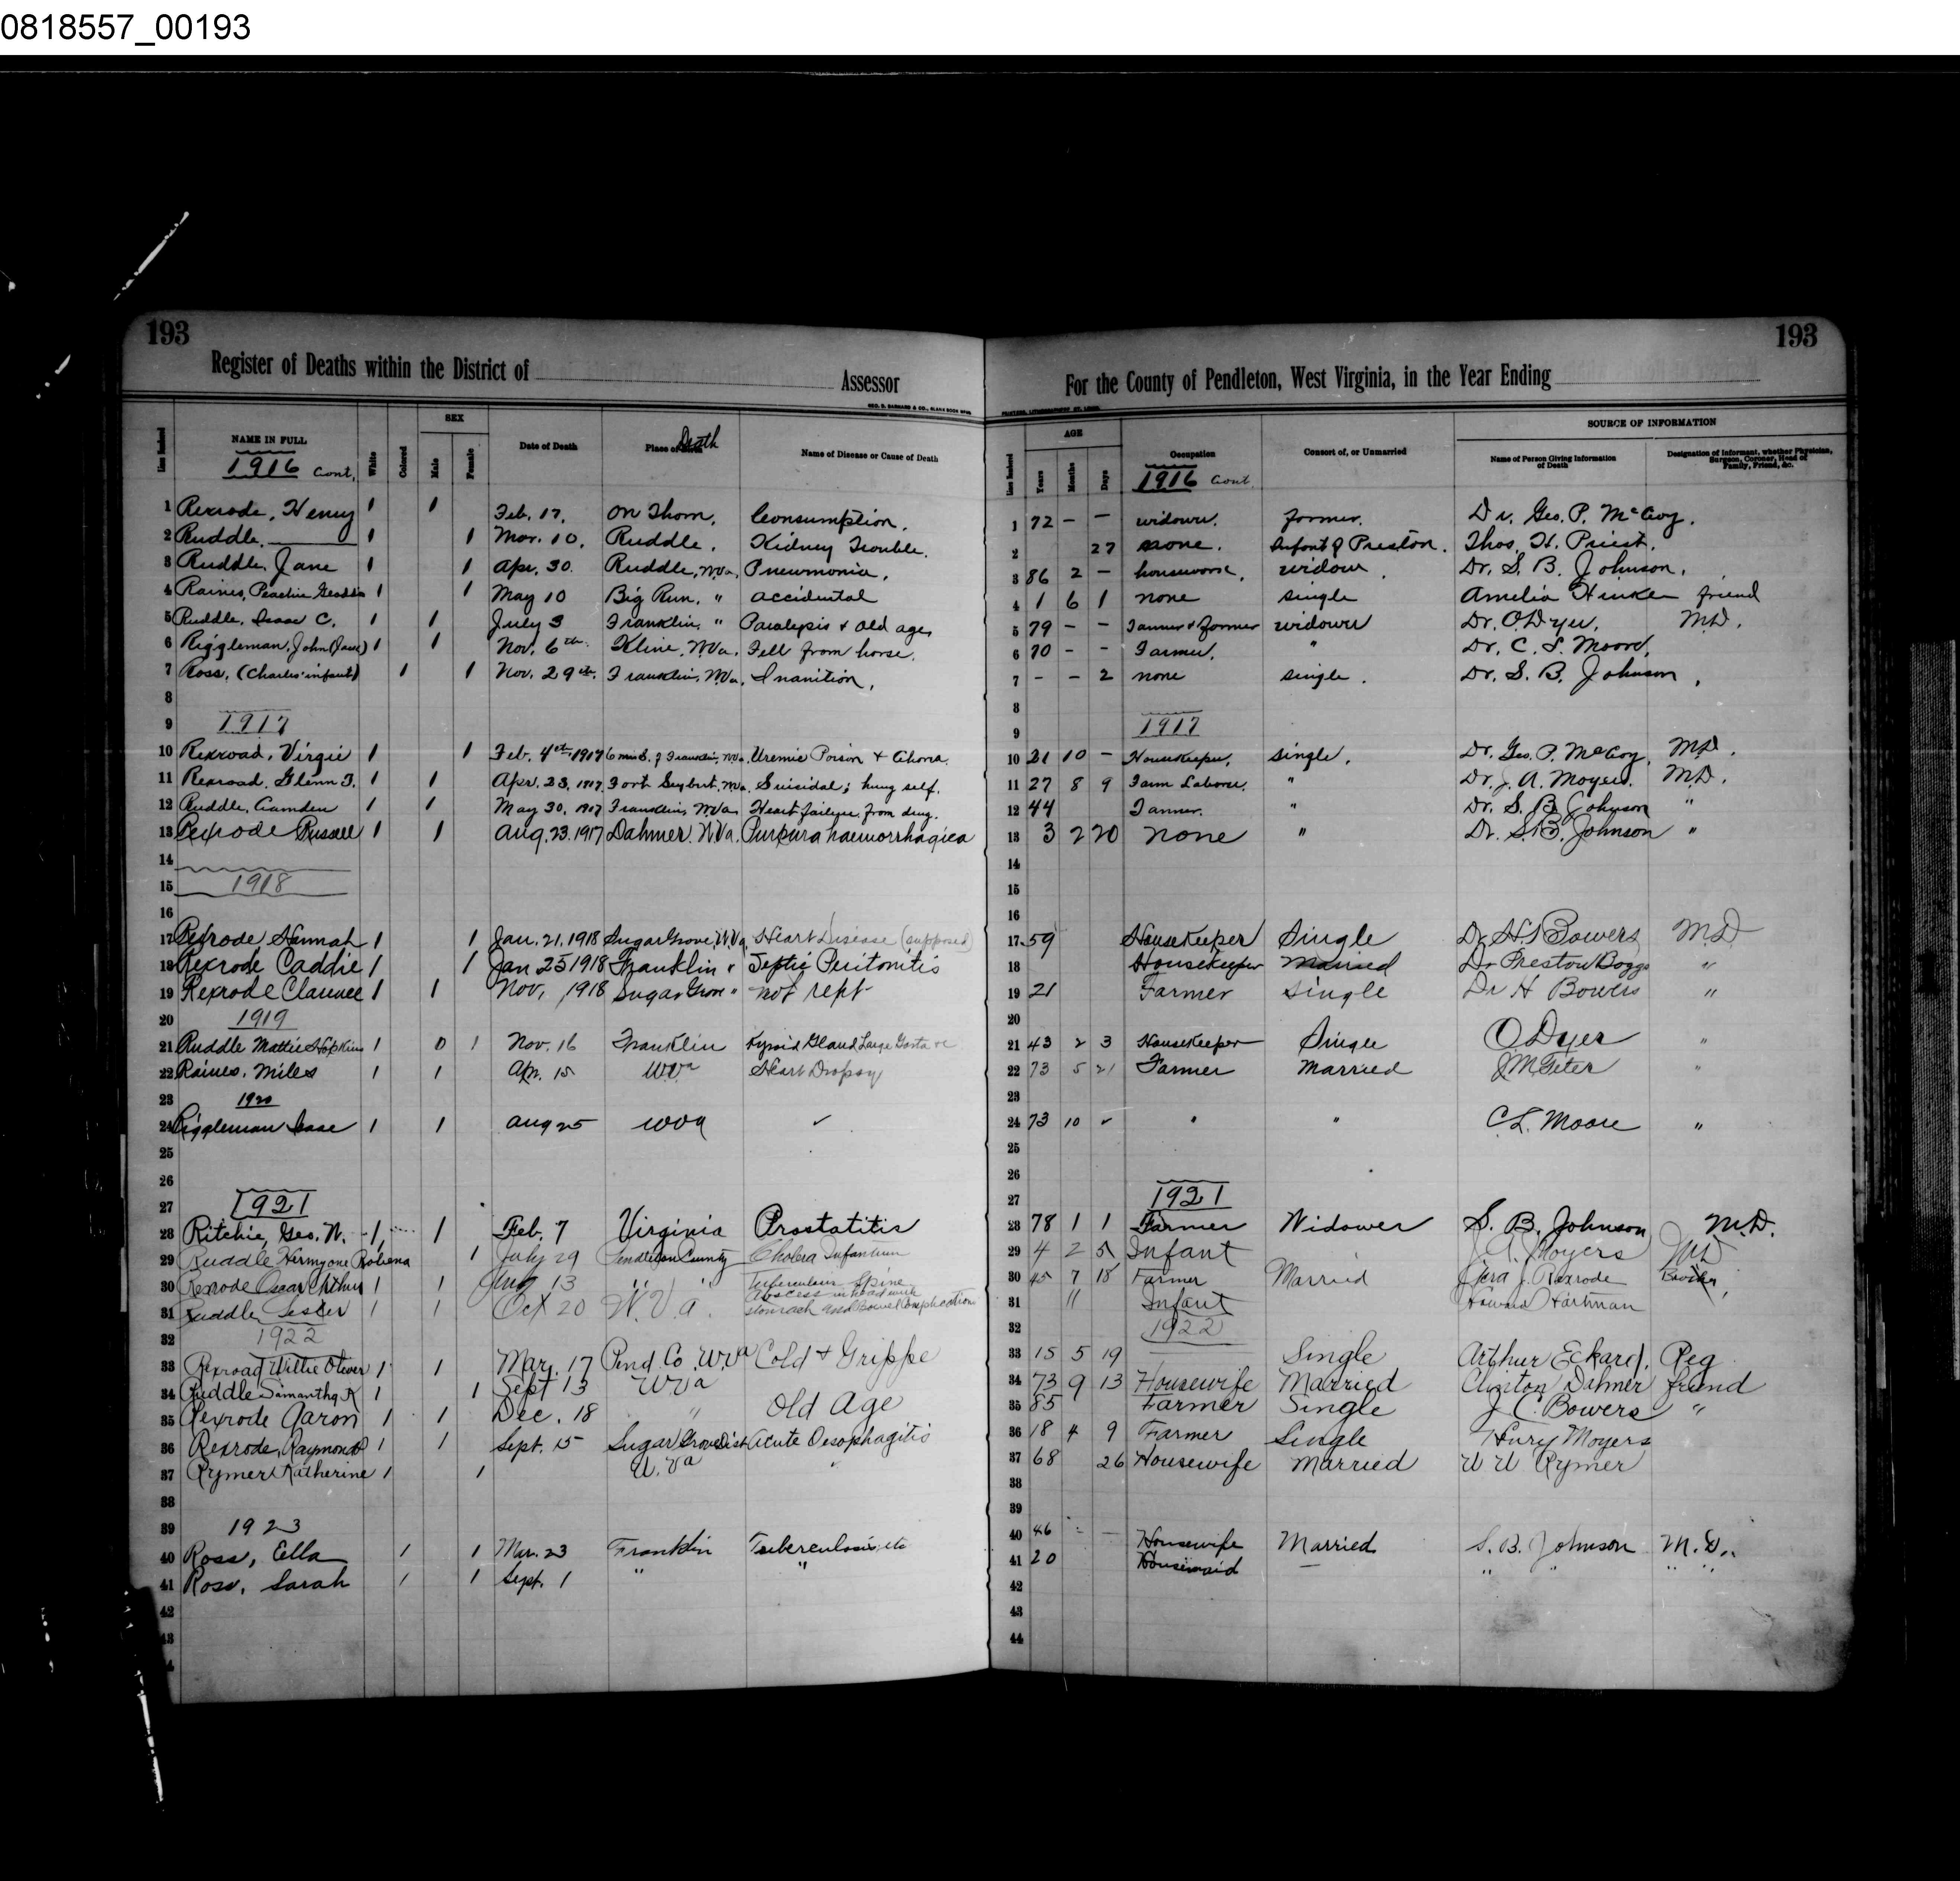 0818557_00193
193
Register of Deaths within the District of
Assessor
GEO. D. BARNARD & CO., BLANK BOOK MFRS.
Line Number
NAME IN FULL
White
Colored
SEX
Male
Female
Date of Death
Place of Death
Name of Disease or Cause of Death
1916 Cont.
1 Rexrode, Henry 1 1 Feb. 17. On Thorn. Consumption.
2 Ruddle, 1 1 Mar. 10. Ruddle, Kidney Trouble.
3 Ruddle, Jane 1 1 Apr. 30. Ruddle, W.Va. Pneumonia.
4 Raines, 1 1 May 10 Big Run, " accidental
5 Ruddle, Isaac C. 1 1 July 3 Franklin, " Paralysis & old age,
6 Riggleman, John 1 1 Nov. 6th Kline, W.Va. Fell from horse.
7 Ross, (Charles' infant) 1 1 Nov. 29th. Franklin, W.Va. Inanition,
8
9 1917
10 Rexroad, Virgie 1 1 Feb. 4th 1917 6 mi S. of Franklin, W.Va. Uremic Poison +
11 Rexroad, Glenn 1 1 Apr. 23, 1917 Fort Seybert, W.Va. Suicidal; hung self.
12 Ruddle, Camden 1 1 May 30, 1917 Franklin, W.Va. Heart failure from drug.
13 Rexrode Russell 1 1 Aug. 23. 1917 Dahmer. W.Va. Purpura haemorrhagica
14
15 1918
16
17 Rexrode, Hannah 1 1 Jan. 21. 1918 Sugar Grove, W.Va. Heart Disease (supposed)
18 Rexrode Caddie 1 1 Jan 25 1918 Franklin " Septic Peritonitis
19 Rexrode Clarence 1 1 Nov, 1918 Sugar Grove " not rept
20 1919
21 Ruddle Mattie Hopkins 1 0 1 Nov. 16 Franklin
22 Raines, Miles 1 1 Apr. 15 WVa Heart Dropsy
23 1920
24 Riggleman Isaac 1 1 Aug 25 WVa
25
26
27 1921
28 Ritchie, Geo. W. 1 1 Feb. 7 Virginia Prostatitis
29 Ruddle Hermyone Robena 1 July 29 Pendleton County Cholera Infantum
30 Rexrode Oscar Arthur 1 1 Aug 13 " " Tuberculous Spine
31 Ruddle Lester 1 1 Oct 20 W. Va. Abscess in head with stomach and Bowel Complications
32 1922
33 Rexroad Willie Oliver 1 1 Mar. 17 Pend. Co. W.Va Cold + Grippe
34 Ruddle Samantha K 1 1 Sept 13 WVa
35 Rexrode Aaron 1 1 Dec. 18 " Old Age
36 Rexrode, Raymond 1 1 Sept. 15 Sugar Grove Dist Acute Oesophagitis
37 Rymer Katherine 1 1 W. Va "
38
39 1923
40 Ross, Ella 1 1 Mar. 23 Franklin Tuberculosis
41 Ross, Sarah 1 1 Sept. 1 " "
42
43
193
For the County of Pendleton, West Virginia, in the Year Ending
Line Number
AGE
Years
Months
Days
Occupation
Consort of, or Unmarried
SOURCE OF INFORMATION
Name of Person Giving Information of Death
Designation of Informant, whether Physician, Surgeon, Coroner, Head of Family, Friend, &c.
1916 Cont.
1 72 - - widower. farmer. Dr. Geo. P. McCoy.
2 27 none. Infant of Preston. Thos. H. Priest.
3 86 2 - housework. widow. Dr. S. B. Johnson.
4 1 6 1 none single Amelia friend
5 79 - - Tanner & farmer widower Dr. O. Dyer, M.D.
6 70 - - Farmer. " Dr. C. L. Moore,
7 - - 2 none single. Dr. S. B. Johnson,
8
9 1917
10 21 10 - Housekeeper, single, Dr. Geo. P. McCoy, M.D.
11 27 8 9 Farm Laborer. " Dr. J. A. Moyers. M.D.
12 44 Farmer. " Dr. S. B. Johnson "
13 3 2 20 none " Dr. S.B. Johnson "
14
15
16
17 59 Housekeeper Single Dr H Bowers M.D
18 Housekeeper Married Dr Preston Boggs "
19 21 Farmer Single Dr H Bowers "
20
21 43 2 3 Housekeeper Single O Dyer "
22 73 5 21 Farmer Married "
23
24 73 10 " " C L. Moore "
25
26
27 1921
28 78 1 1 Farmer Widower S. B. Johnson M.D.
29 4 2 5 Infant J. A. Moyers MD
30 45 7 18 Farmer Married J. Rexrode Brother,
31 11 Infant Howard Hartman
32 1922
33 15 5 19 Single Arthur Eckard, Reg
34 73 9 13 Housewife Married Clinton Dahmer friend
35 85 Farmer Single J C. Bowers "
36 18 4 9 Farmer Single Henry Moyers
37 68 26 Housewife Married W W Rymer
38
39
40 46 - - Housewife Married S. B. Johnson M.D.
41 20 Housemaid - " " " "
42
43
44